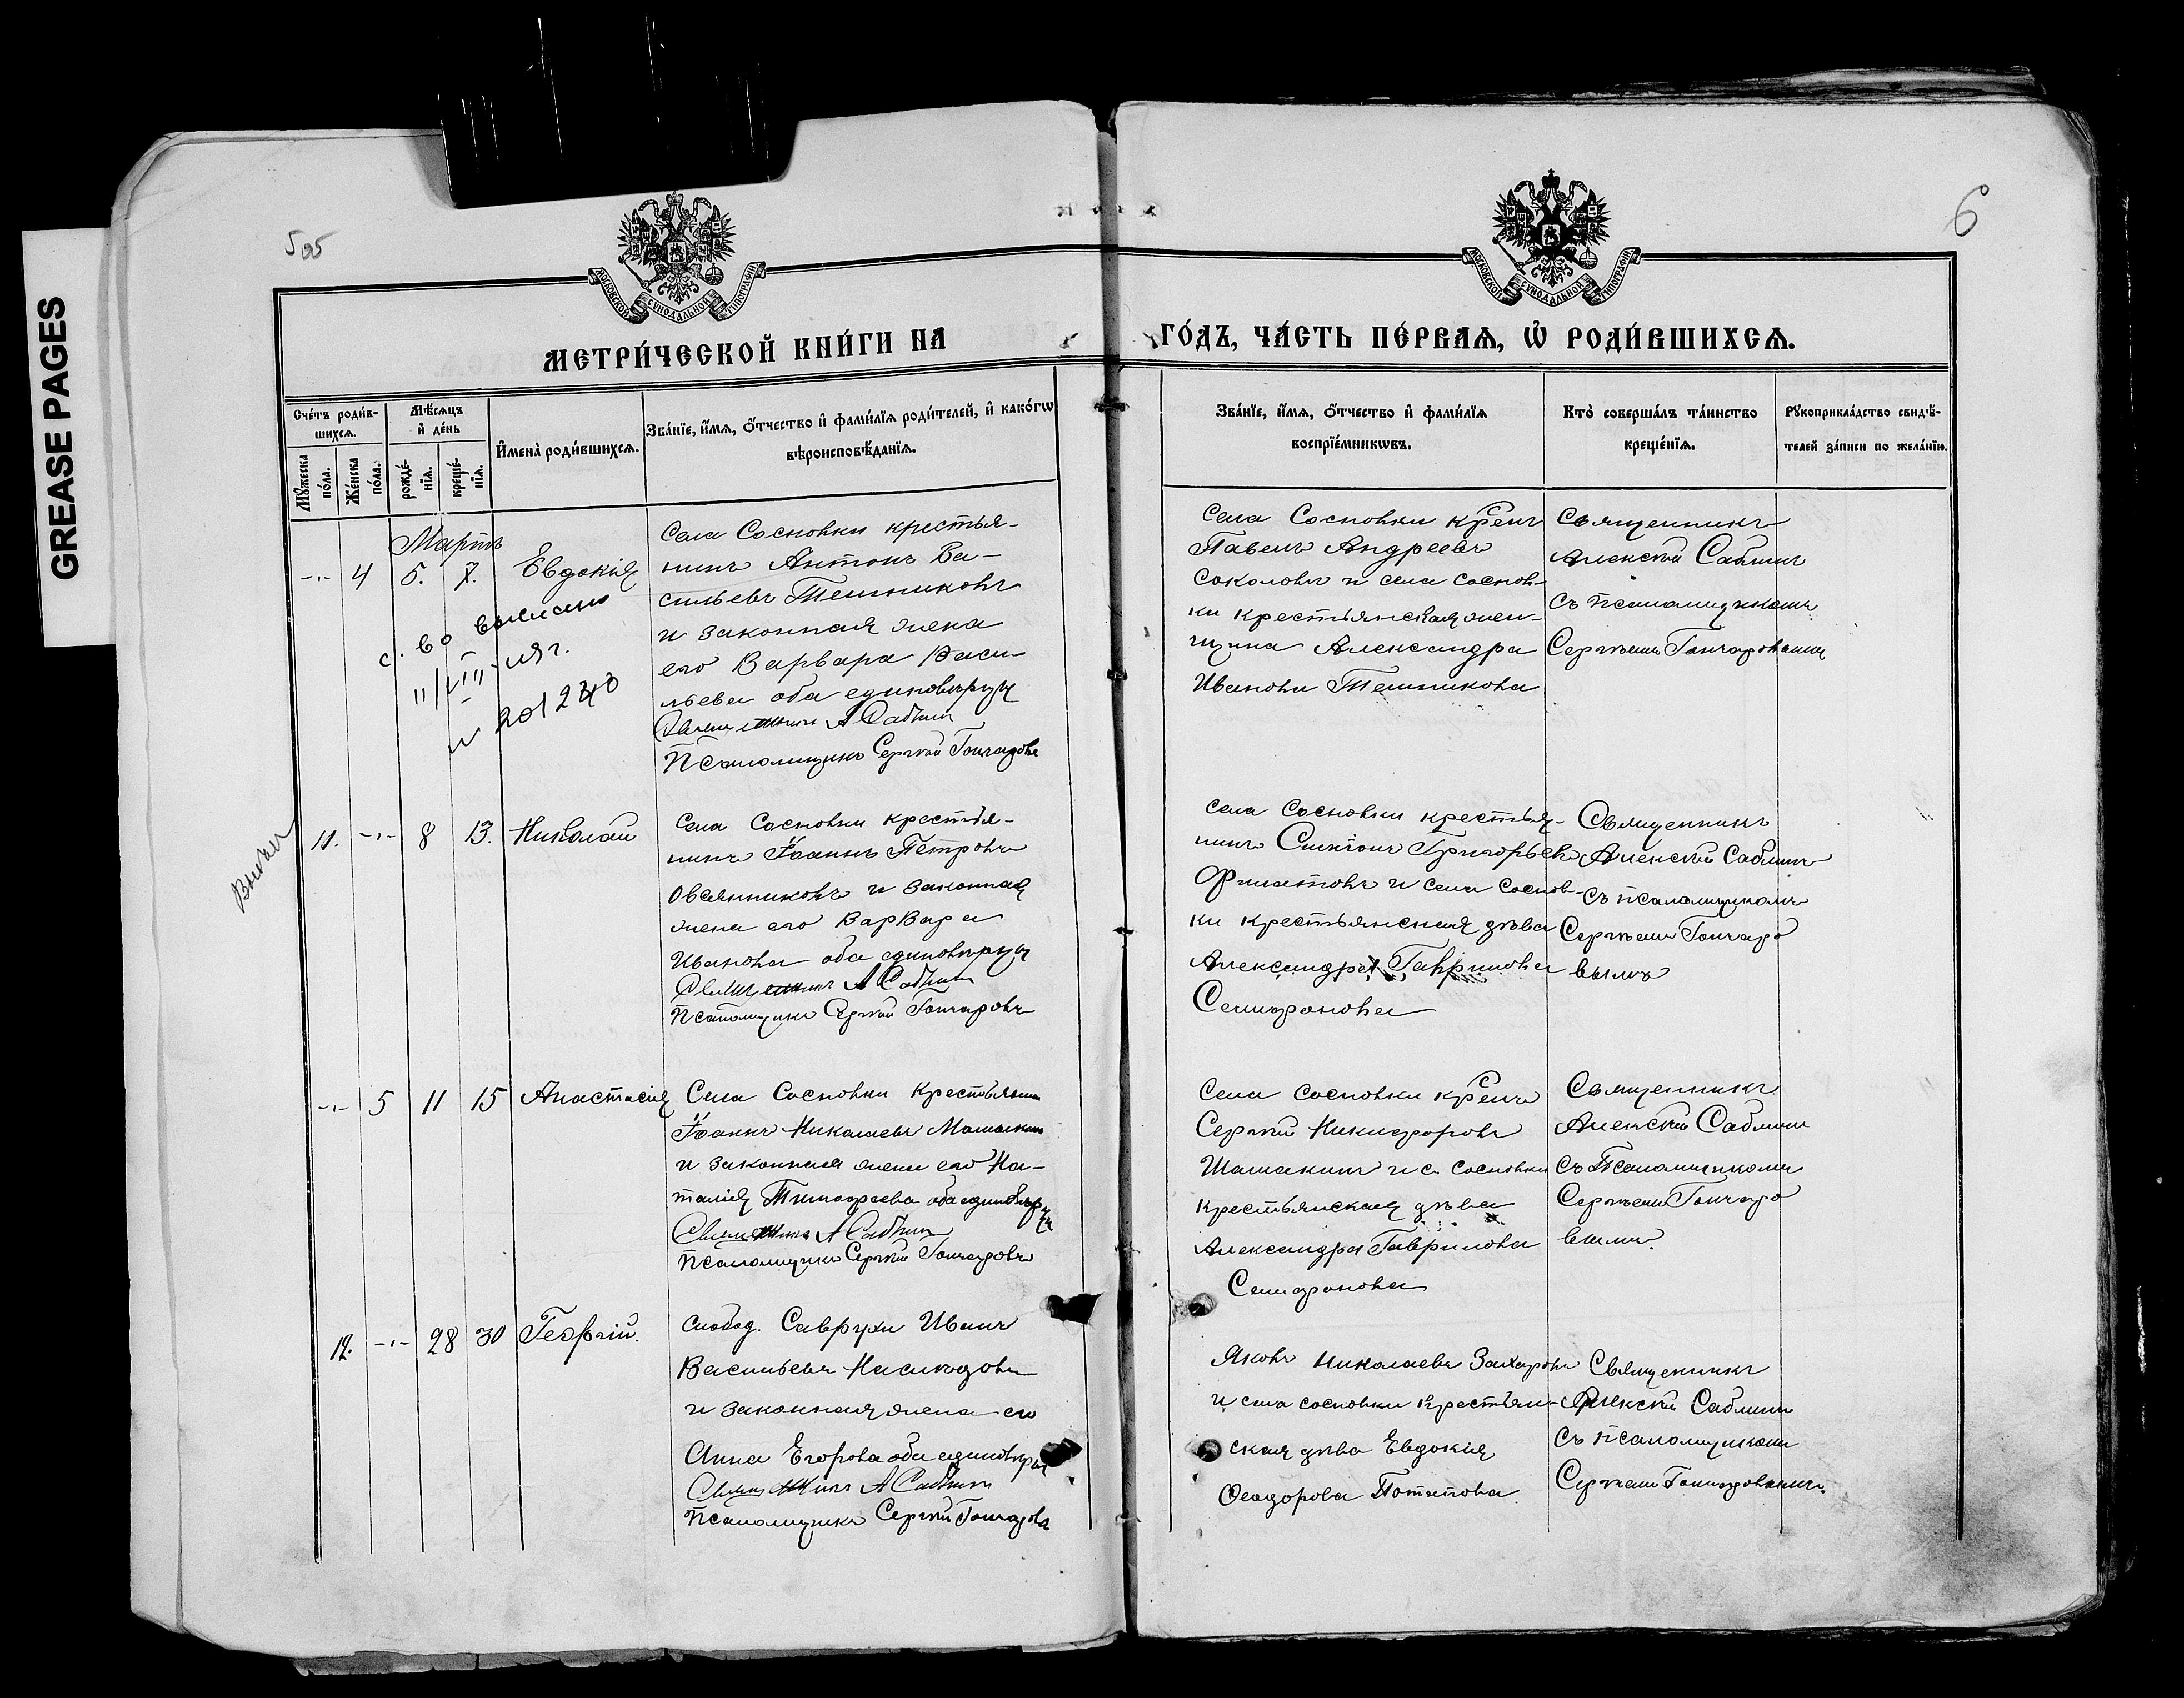 GREASE PAGES
595
6
МОСКОВСКОЙ СѴНОДАЛЬНОЙ ТИПОГРАФІИ.
МОСКОВСКОЙ СѴНОДАЛЬНОЙ ТИПОГРАФІИ.
МЕТРИ́ЧЕСКОЙ КНИ́ГИ НА
ГО́ДЪ, ЧА́СТЬ ПЕ́РВАѦ, Ѡ҆ РОДИ́ВШИХСѦ.
Сче́тъ роди́в-
шихсѧ.
Мꙋ́жеска
по́ла.
Же́нска
по́ла.
Мѣ́сѧцъ
и҆ де́нь
рожде́-
нїѧ.
креще́-
нїѧ.
И҆мена̀ роди́вшихсѧ.
Зва́нїе, и҆́мѧ, ѻ҆́тчество и҆ фами́лїѧ роди́телей, и҆ како́гѡ
вѣроисповѣ́данїѧ.
Зва́нїе, и҆́мѧ, ѻ҆́тчество и҆ фами́лїѧ
воспрїе́мникѡвъ.
Кто̀ соверша́лъ та́инство
креще́нїѧ.
Рꙋкоприкла́дство свидѣ́-
телей за́писи по жела́нїю.
Мартъ
-"- 4 5. 7. Евдокія
с. во выслано
11/VIII-
N 201240
Села Сосновки крестья-
нинъ Антонъ Ва-
сильевъ Тешниковъ
и законная жена
его Варвара Васи-
льева оба единовѣрцы
Священникъ А Саблин
Псаломщикъ Сергѣй Гончаровъ
Села Сосновки кренъ
Павелъ Андреевъ
Соколовъ и села Соснов-
ки крестьянская жен-
щина Александра
Иванова Тешникова
Священникъ
Алексѣй Саблинъ
съ псаломщикомъ
Сергѣемъ Гончаровымъ
11. -"- 8 13. Николай
Села Сосновки крестья-
нинъ Іоаннъ Петровъ
Овсянниковъ и законная
жена его Варвара
Иванова оба единовѣрцы
Священникъ А Саблин
Псаломщикъ Сергѣй Гончаровъ
Села Сосновки крестья-
нинъ Григорьевъ
Филатовъ и села Соснов-
ки крестьянская дѣва
Александра Гаврилова
Семиронова
Священникъ
Алексѣй Саблинъ
съ псаломщикомъ
Сергѣемъ Гончаро
вымъ
-"- 5 11 15 Анастасія
Села Сосновки Крестьянин
Іоаннъ Николаевъ
и законная жена его На-
талія Тимофеева оба единовѣрцы
Священникъ А Саблин
Псаломщикъ Сергѣй Гончаровъ
Села Сосновки кренъ
Сергѣй Никифоровъ
Шамакинъ и с. Сосновки
крестьянская дѣва
Александра Гаврилова
Семиронова
Священникъ
Алексѣй Саблинъ
съ Псаломщикомъ
Сергѣемъ Гончаро
вымъ.
12. -"- 28 30 Георгій.
Слобод. Саврухи Иванъ
Васильевъ
и законная жена его
Анна Егорова оба единовѣрцы
Священникъ А Саблин
Псаломщикъ Сергѣй Гончаровъ
Яковъ Николаевъ Захаровъ
и села Сосновки крестьян-
ская дѣва Евдокія
Ѳеодорова Потапова.
Священникъ
Алексѣй Саблинъ
съ псаломщикомъ
Сергѣемъ Гончаровымъ.